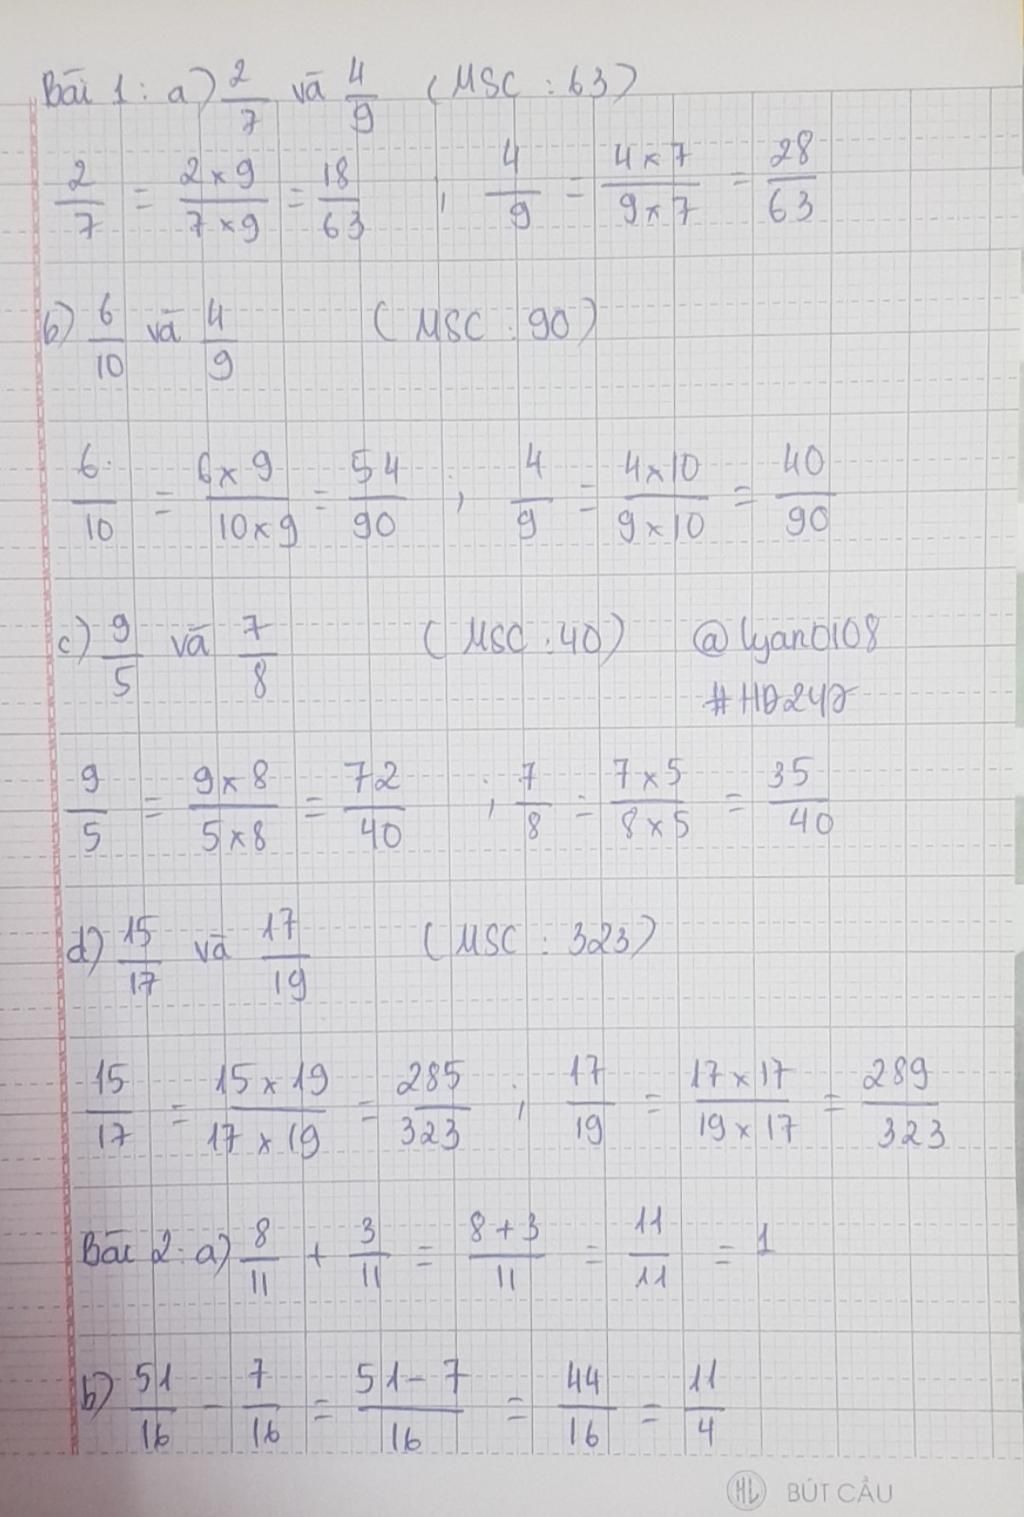 Bài 1: a) 2/7 và 4/9 (MSC : 63)
2/7 = 2 x 9 / 7 x 9 = 18/63 ; 4/9 = 4 x 7 / 9 x 7 = 28/63
b) 6/10 và 4/9 (MSC : 90)
6/10 = 6 x 9 / 10 x 9 = 54/90 ; 4/9 = 4 x 10 / 9 x 10 = 40/90
c) 9/5 và 7/8 (MSC : 40) @lyan0108
#HD247
9/5 = 9 x 8 / 5 x 8 = 72/40 ; 7/8 = 7 x 5 / 8 x 5 = 35/40
d) 15/17 và 17/19 (MSC : 323)
15/17 = 15 x 19 / 17 x 19 = 285/323 ; 17/19 = 17 x 17 / 19 x 17 = 289/323
Bài 2: a) 8/11 + 3/11 = 8 + 3 / 11 = 11/11 = 1
b) 51/16 - 7/16 = 51 - 7 / 16 = 44/16 = 11/4
HL BÚT CẨU